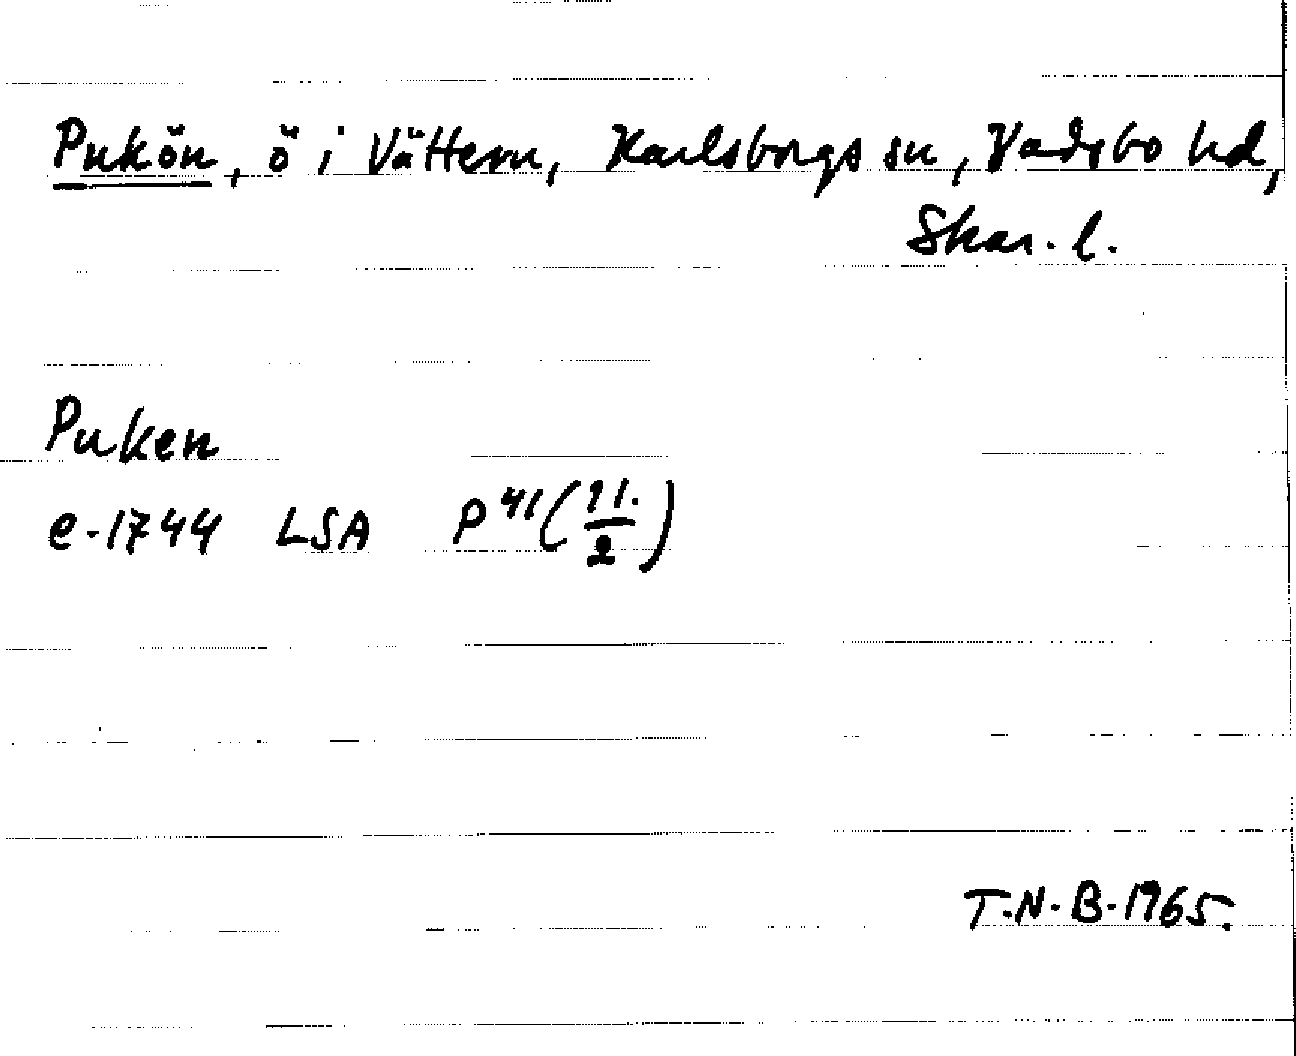 Pukön, ö i Vättern, Karlsborgs sn, Vadsbo hd,
Skar. l.
Puken
e. 1744 LSA P 41 (11./2)
T.N.B. 1965.